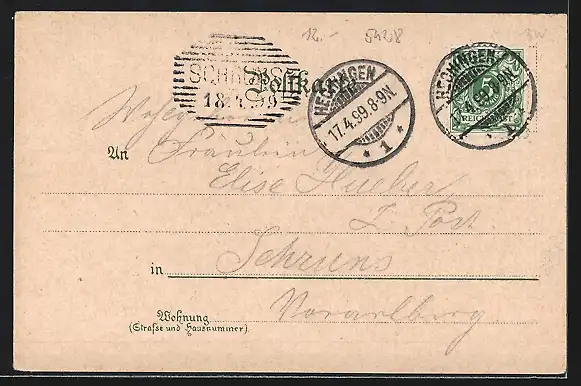 12.- 5428
SCHRUNS
18.4.99
Postkarte
HECHINGEN
17.4.99.8-9N.
* 1 *
HECHINGEN
REICHSPOST
Wohlgeboren
An Fräulein
Elise Hueber
z. Post
in Schruns
Wohnung Vorarlberg
(Straße und Hausnummer)